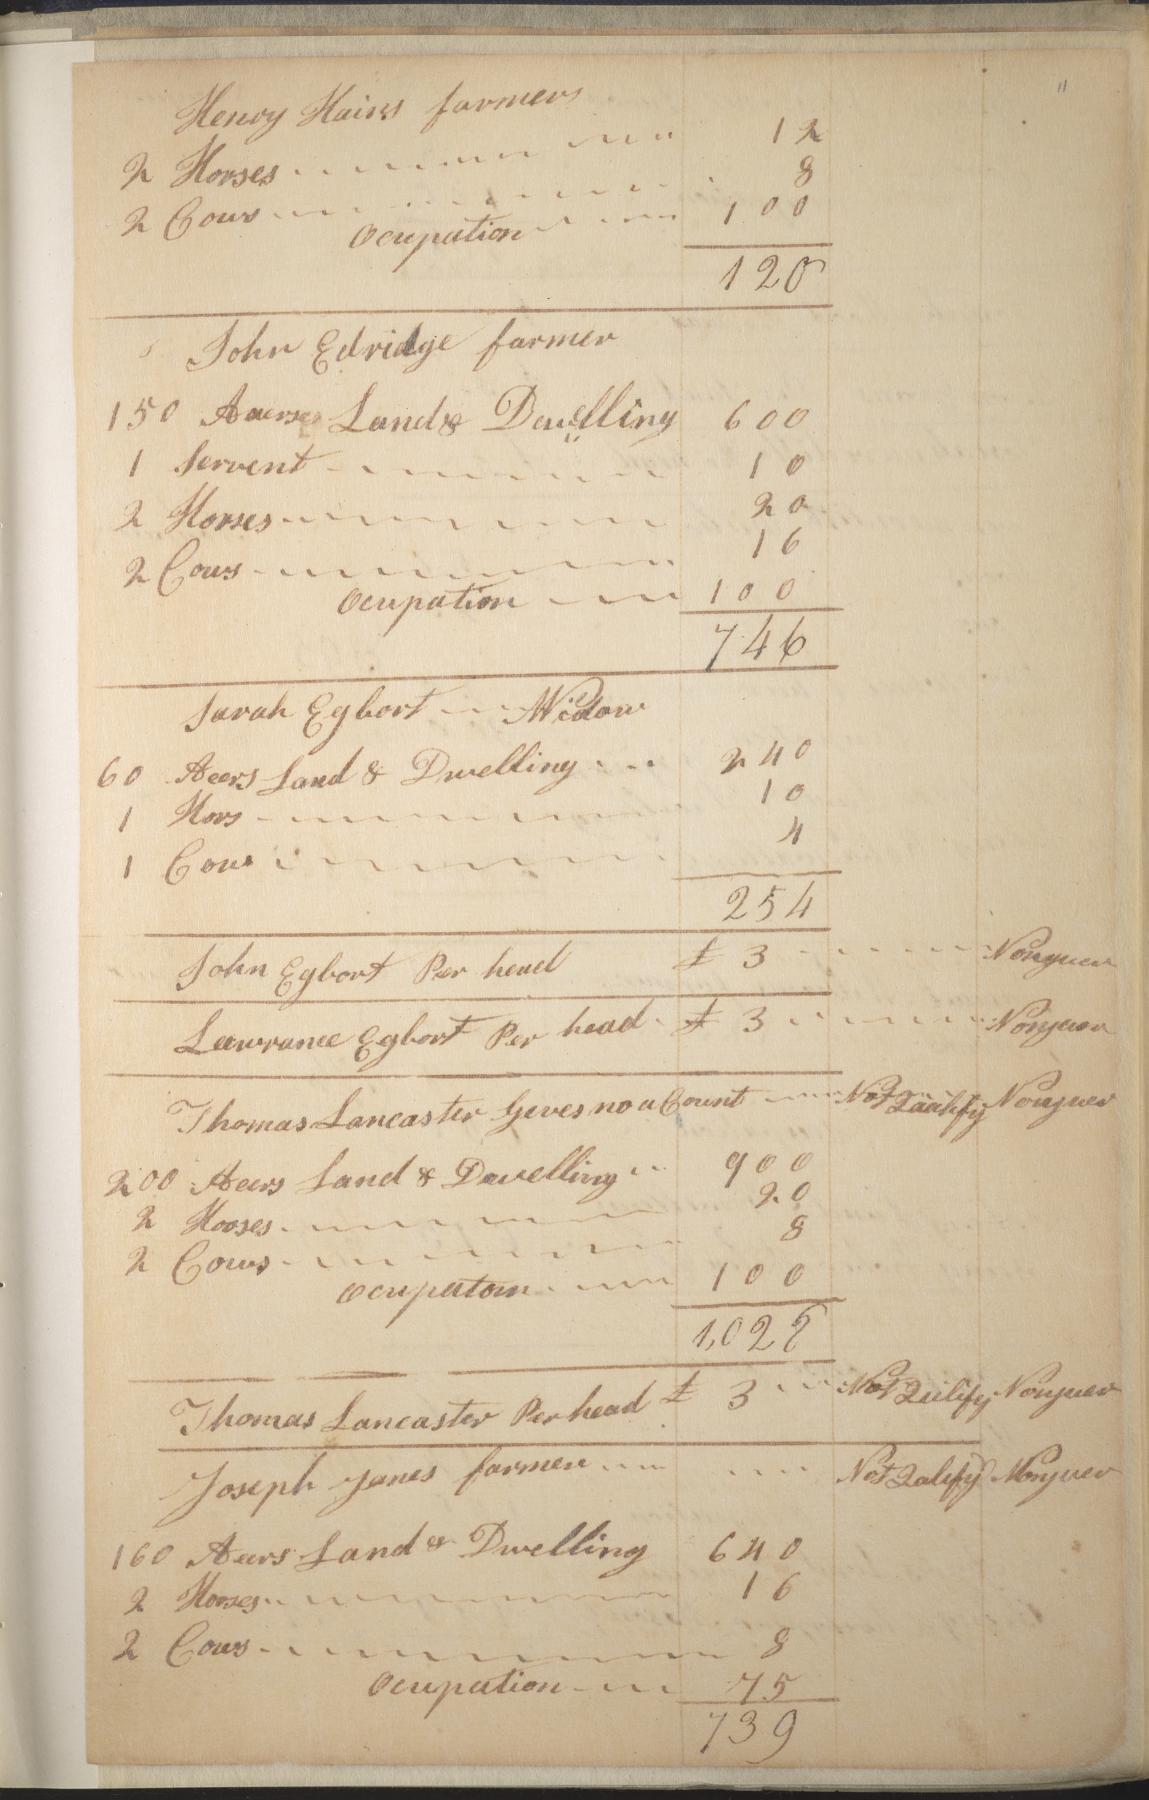 11
Henry Hains farmers
2 Horses 12
2 Cows 8
Ocupation 100
120
John Edridge farmer
150 Acers Land & Dwelling 600
1 Servent 10
2 Horses 20
2 Cows 16
Ocupation 100
746
Sarah Egbort Widow
60 Acers Land & Dwelling 240
1 Hors 10
1 Cow 4
254
John Egbort Per head £ 3 Nonjuer
Lawrance Egbort Per head £ 3 Nonjuer
Thomas Lancaster Geves no a Count Not Qualify Nonjuer
200 Acers Land & Dwelling 900
2 Horses 20
2 Cows 8
Ocupatom 100
1,028
Thomas Lancaster Per head £ 3 Not Qulify Nonjuer
Joseph Janes farmer Not Qalify Nonjuer
160 Acers Land & Dwelling 640
2 Horses 16
2 Cows 8
Ocupation 75
739